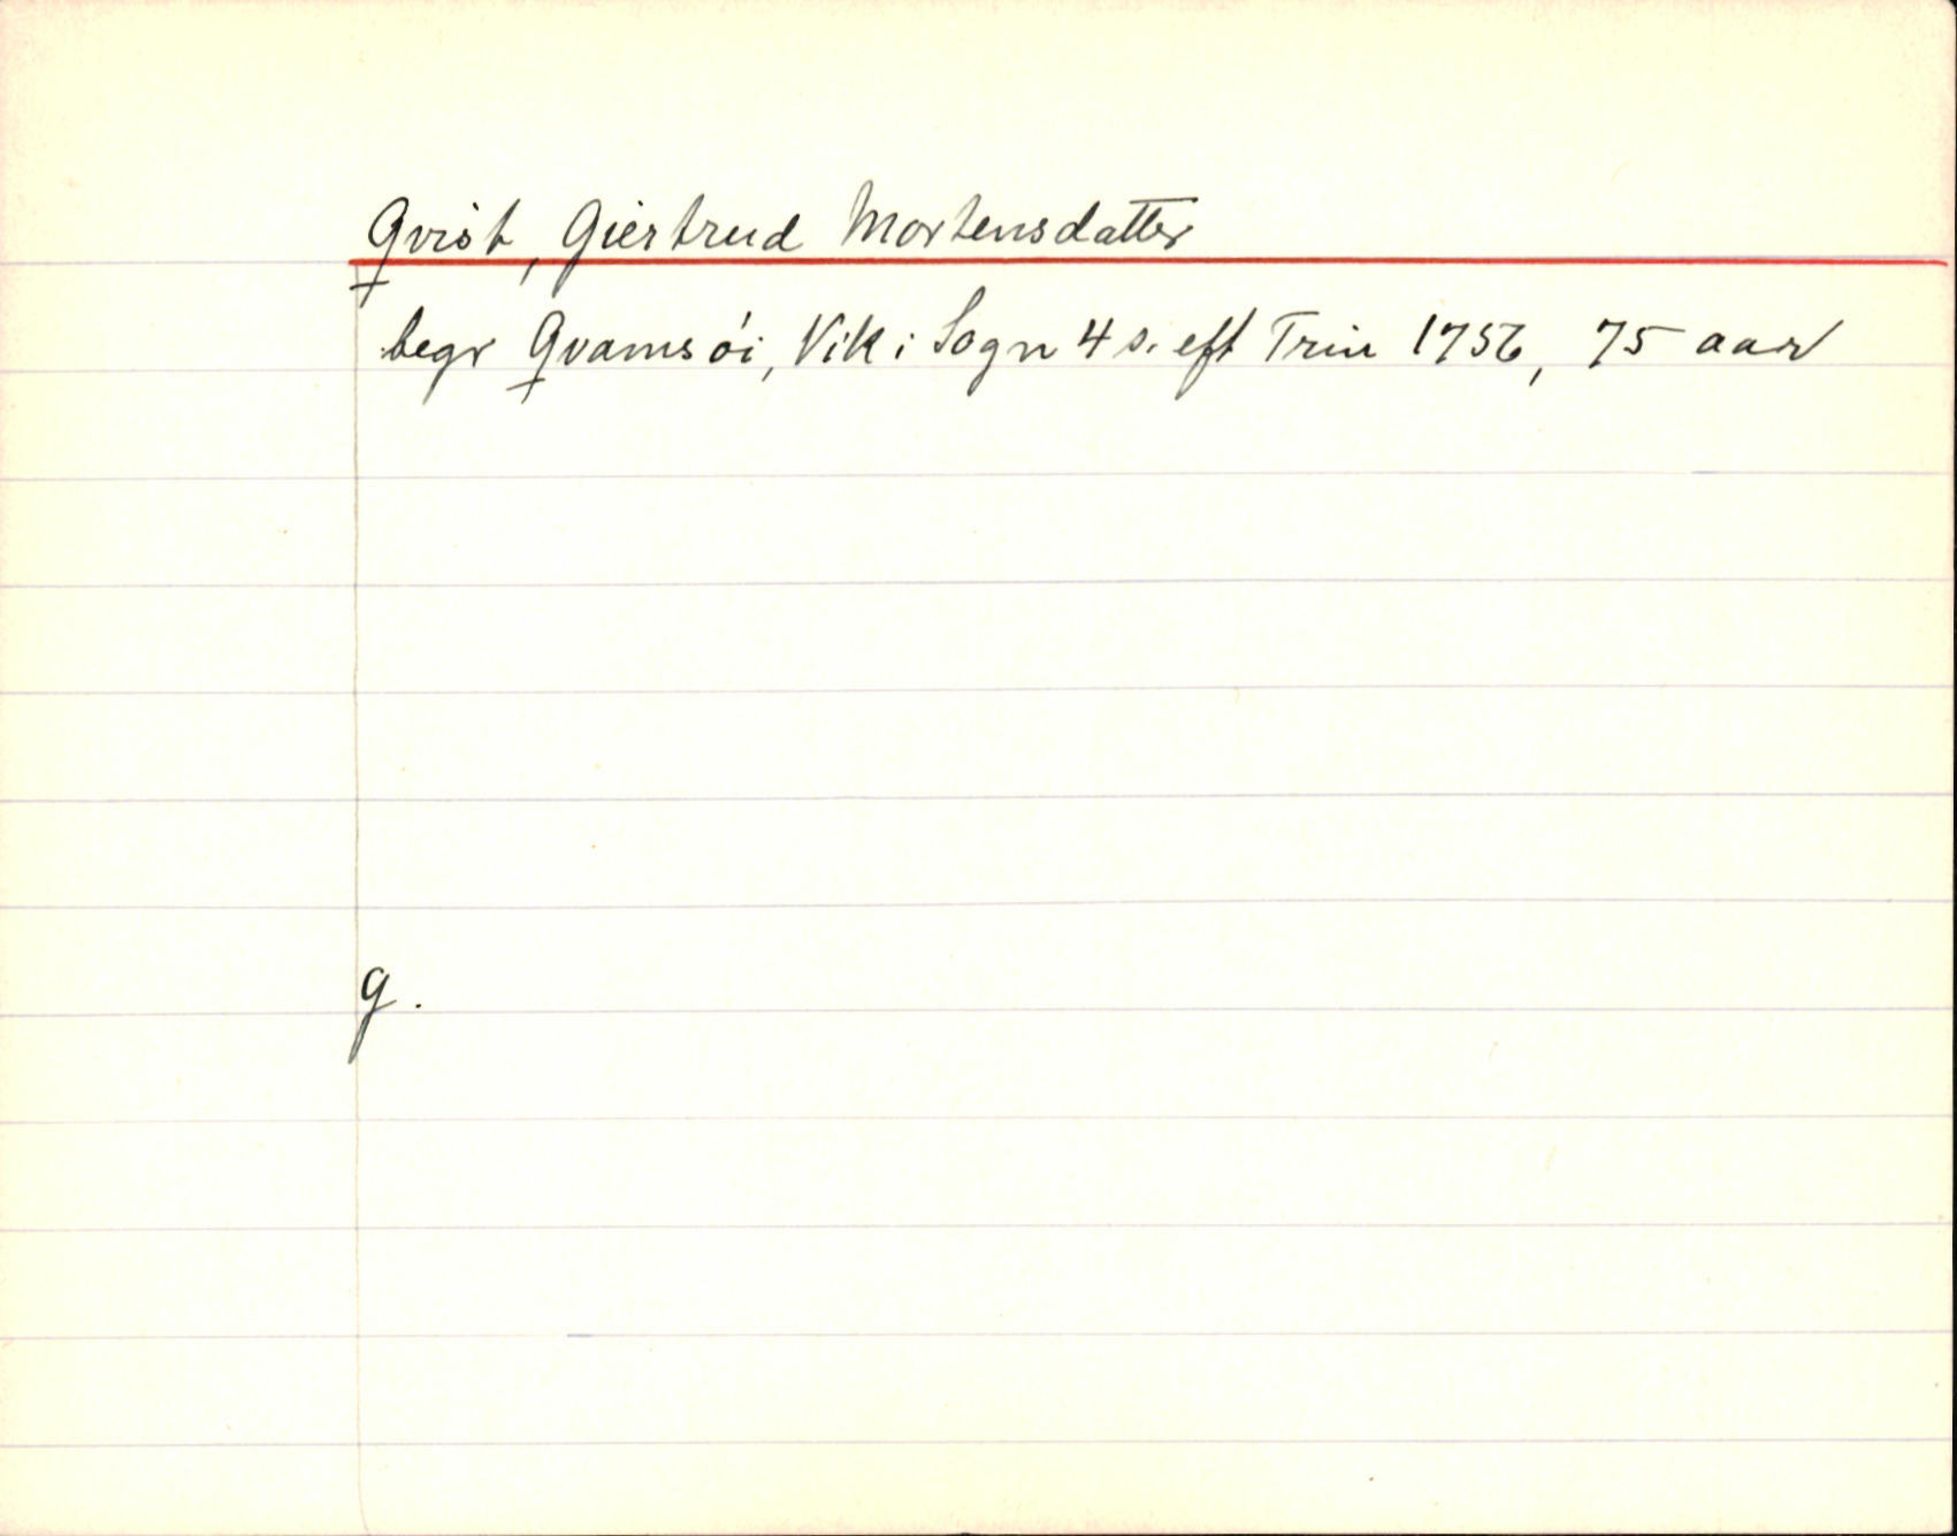 Qvist, Giertrud Mortensdatter
begr Qvamsöi, Vik i Sogn 4 s. eft Trin 1756, 75 aar
g.